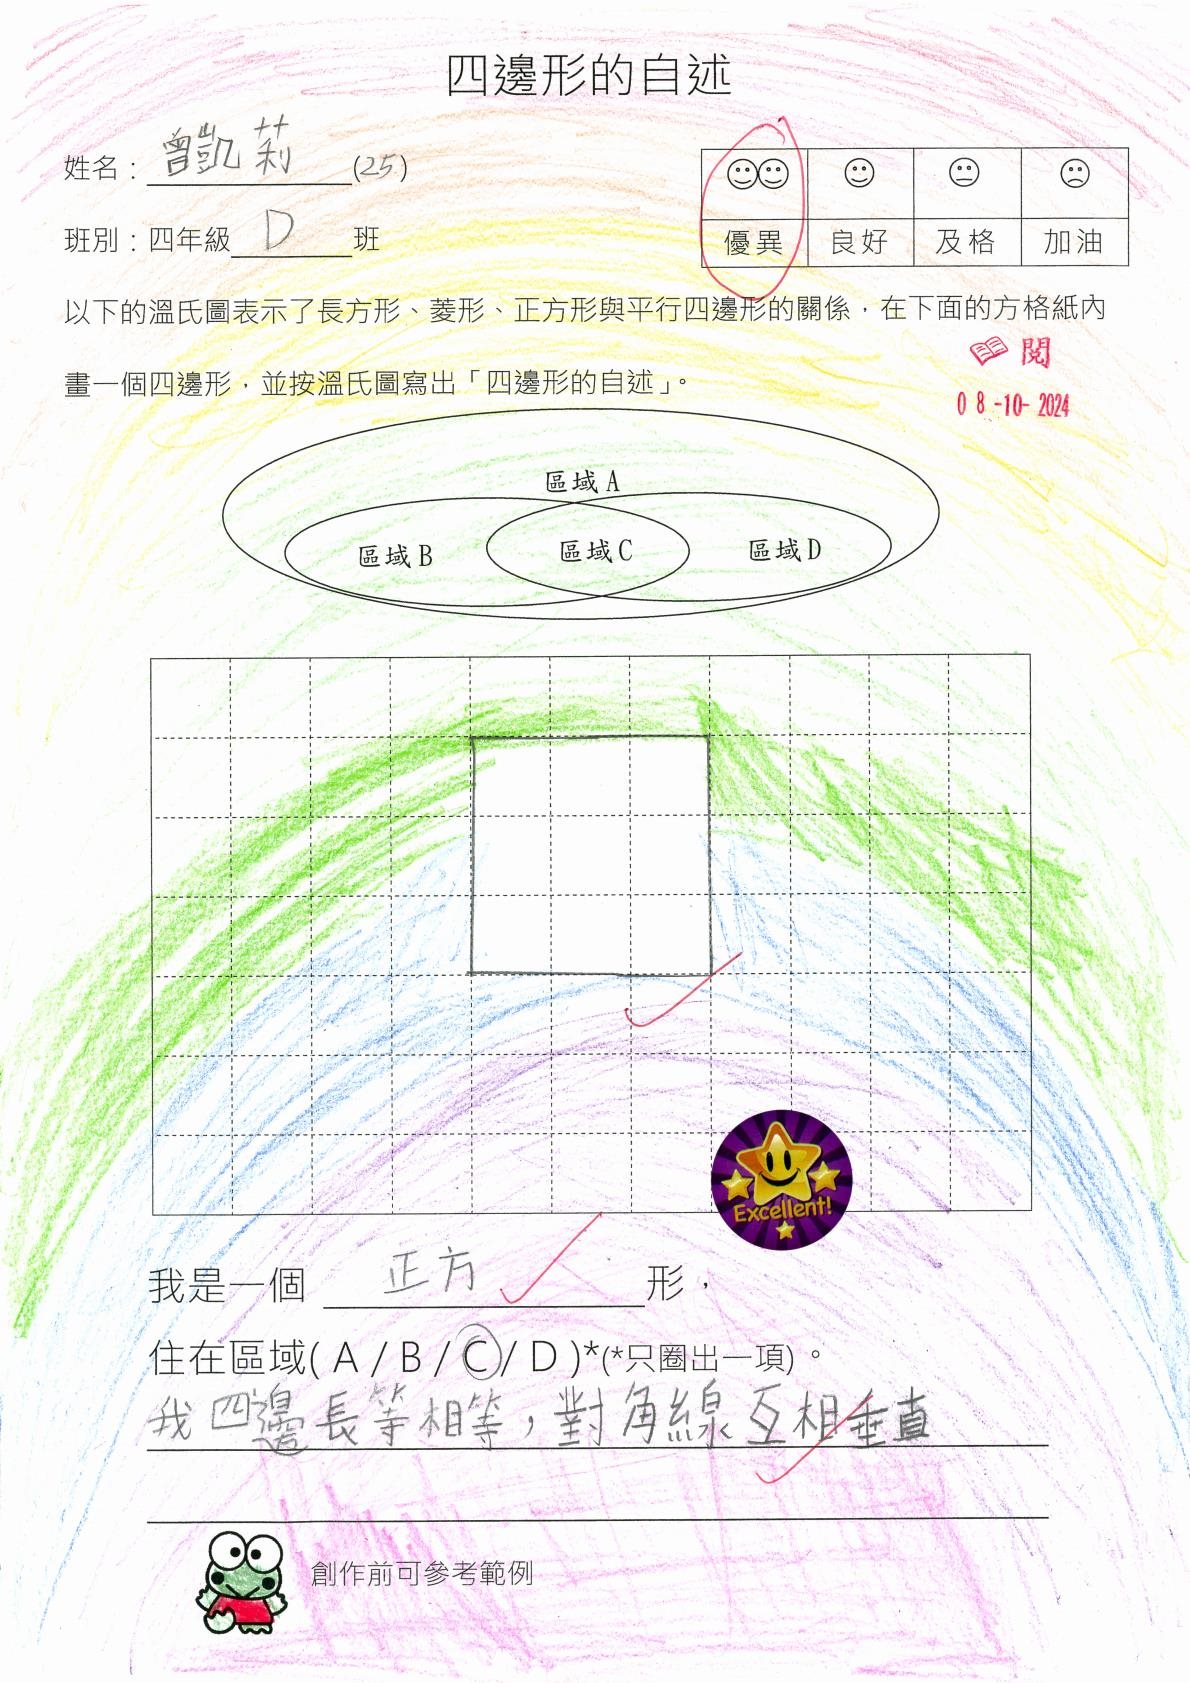 四邊形的自述
姓名：曾凱莉(25)
優異 良好 及格 加油
班別：四年級D班
以下的溫氏圖表示了長方形、菱形、正方形與平行四邊形的關係，在下面的方格紙內
閱
畫一個四邊形，並按溫氏圖寫出「四邊形的自述」。
08-10-2024
區域A
區域B 區域C 區域D
Excellent!
我是一個 正方 形，
住在區域( A / B / C / D )*(*只圈出一項)。
我四邊長等相等，對角線互相垂直
創作前可參考範例